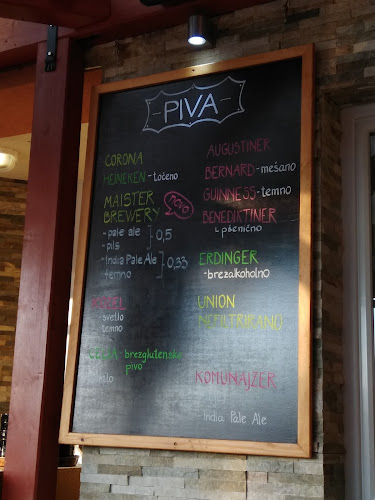 PIVA
CORONA
HEINEKEN - točeno
MAISTER
BREWERY
NOVO
- pale ale
- pils
0,5
- India Pale Ale
- temno
0,33
- svetlo
temno
- brezglutensko
pivo
AUGUSTINER
BERNARD - mešano
GUINNESS - temno
BENEDIKTINER
pšenično
ERDINGER
- brezalkoholno
UNION
NEFILTRIRANO
KOMUNAJZER
- India Pale Ale